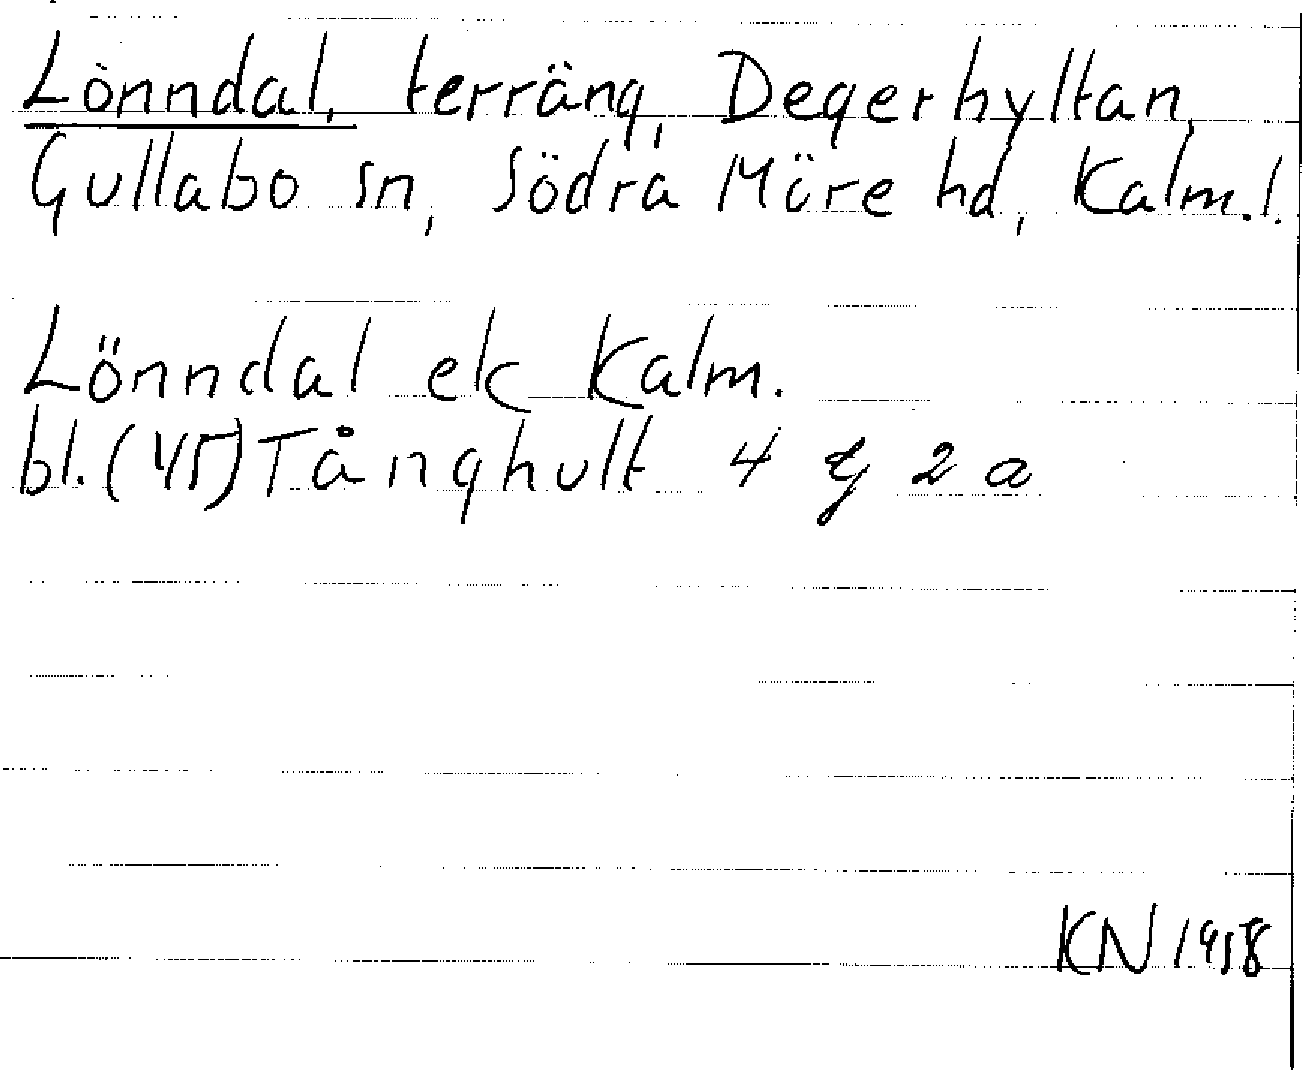 Lönndal, terräng, Degerhyltan,
Gullabo sn, Södra Möre hd, Kalm.l.
Lönndal ek Kalm.
bl. (45) Tånghult 4 g 2 a
KN 1958